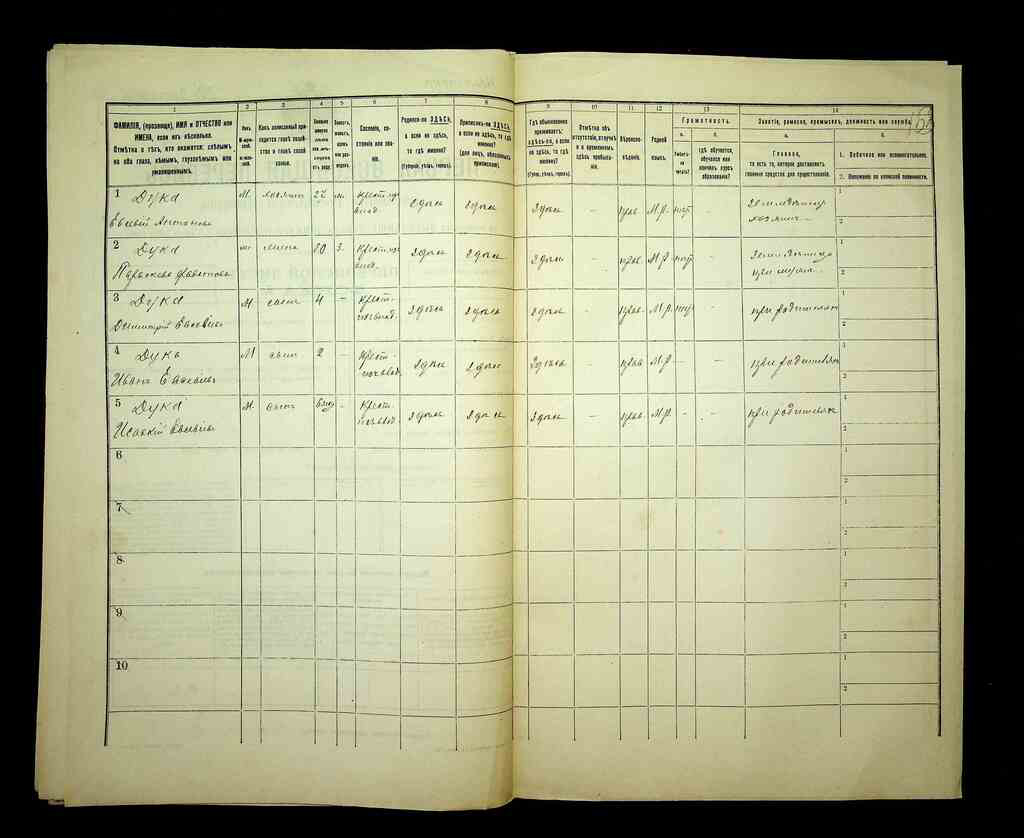 1 2 3 4 5 6 7 8 9 10 11 12 13 14
ФАМИЛІЯ, (прозвище), ИМЯ и ОТЧЕСТВО или
ИМЕНА, если ихъ нѣсколько.
Отмѣтка о тѣхъ, кто окажется: слѣпымъ
на оба глаза, нѣмымъ, глухонѣмымъ или
умалишеннымъ.
Какъ записанный при-
ходится главѣ хозяй-
ства и главѣ своей
семьи.
Сословіе, со-
стояніе или зва-
ніе.
Родился-ли ЗДѢСЬ,
а если не здѣсь,
то гдѣ именно?
(Губернія, уѣздъ, городъ).
Приписанъ-ли ЗДѢСЬ,
а если не здѣсь, то гдѣ
именно?
(Для лицъ, обязанныхъ
припискою).
Гдѣ обыкновенно
проживаетъ:
здѣсь-ли, а если
не здѣсь, то гдѣ
именно?
(Губерн., уѣздъ, городъ).
Отмѣтка объ
отсутствіи, отлучкѣ
и о временномъ
здѣсь пребыва-
ніи.
Вѣроиспо-
вѣданіе.
Родной
языкъ.
Грамотность.
а.
Умѣетъ-
ли
читать?
б.
гдѣ обучается,
обучался или
кончилъ курсъ
образованія?
Занятіе, ремесло, промыселъ, должность или служба.
а.
Главное,
то есть то, которое доставляетъ
главныя средства для существованія.
б.
1. Побочное или вспомогательное.
2. Положеніе по воинской повинности.
1 Дука М. хозяинъ м. здѣсь здѣсь здѣсь - прав. М.Р. нѣтъ - 1
Евсевій Антоновъ 2
2 Дука жена 3. здѣсь здѣсь здѣсь - прав. М.Р. нѣтъ - 1
при мужѣ 2
3 Дука М сынъ 4 - крест. здѣсь здѣсь здѣсь - прав. М.Р. нѣтъ - при родителяхъ 1
Димитрій Евсевіевъ 2
4 Дука М сынъ 2 - крест. здѣсь здѣсь здѣсь - прав М.Р. - - при родителяхъ 1
Иванъ Евсевіевъ 2
5 Дука М. сынъ - крест. здѣсь здѣсь здѣсь - прав М.Р. - - при родителяхъ 1
Исаакій Евсевіевъ 2
6 1
2
7 1
2
8 1
2
9 1
2
10 1
2